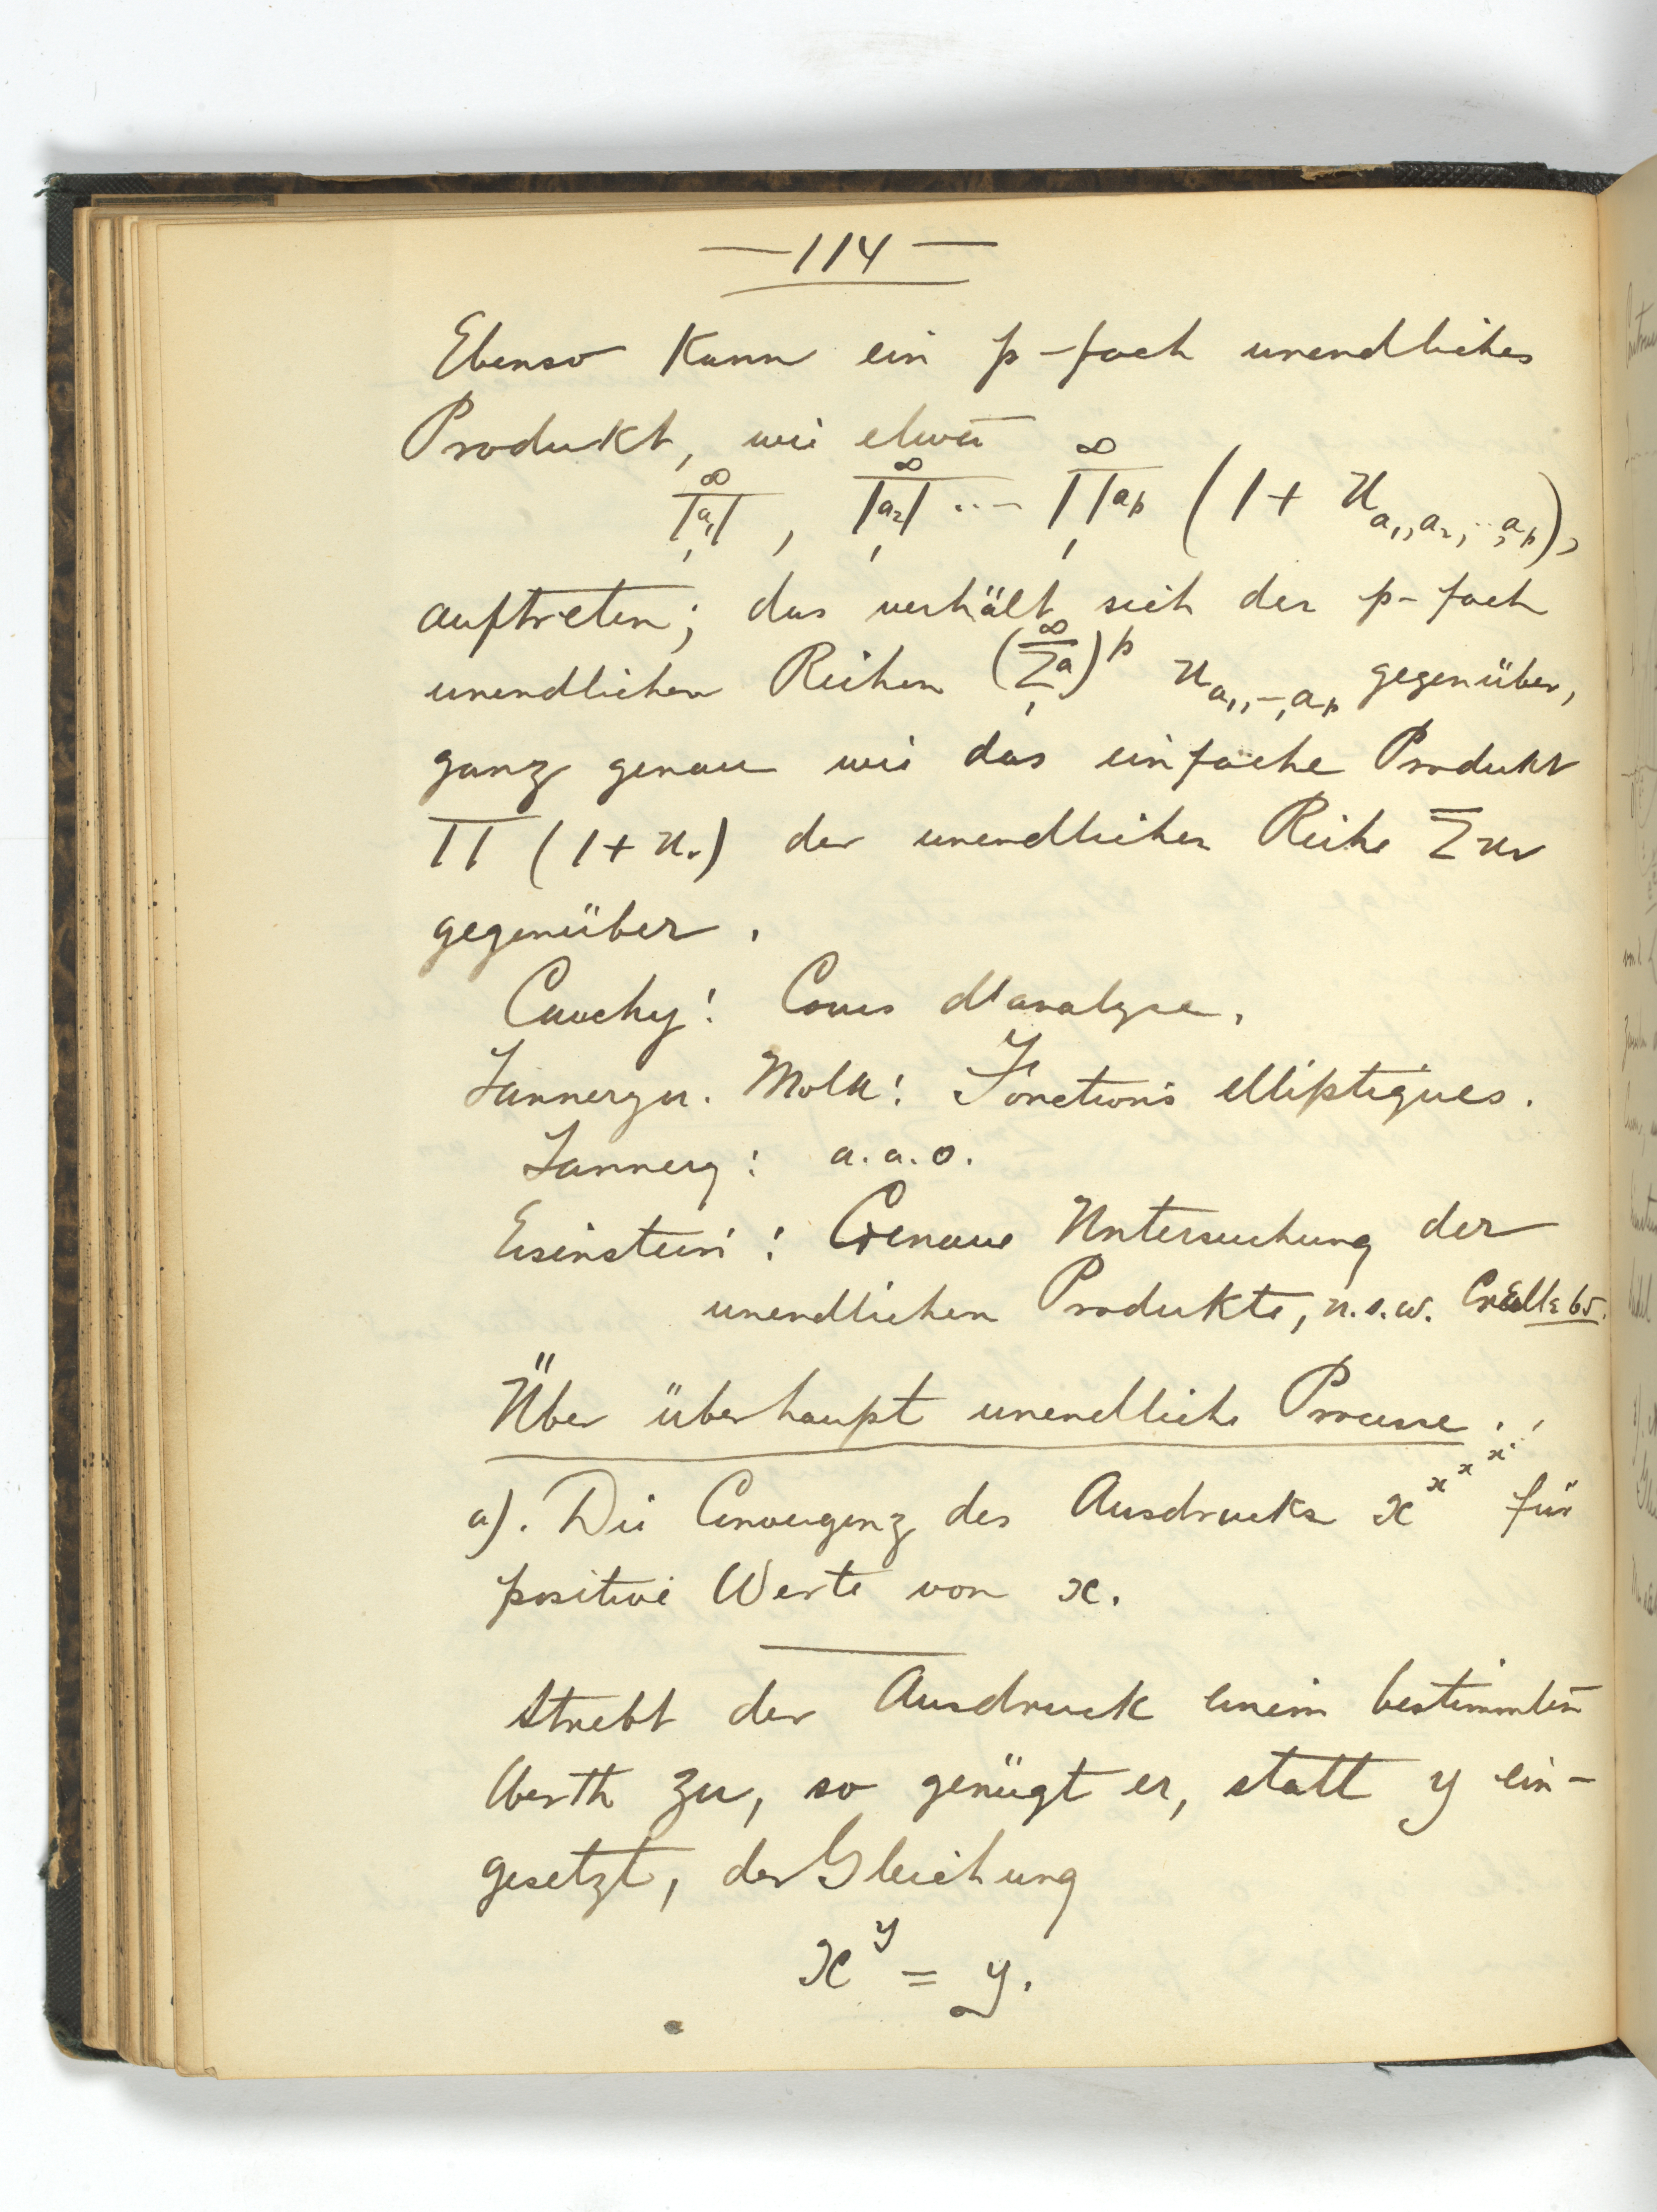 — 114 —
Ebenso kann ein p-fach unendliches
Produkt, wie etwa
∞∏a₁ 1, ∞∏a₂ 1 ... ∞∏aₚ 1 (1 + u a₁,a₂,...,aₚ),
auftreten; das verhält sich der p-fach
unendlichen Reihen (∞Σa 1)^p u a₁,–,aₚ gegenüber,
ganz genau wie das einfache Produkt
∏ (1 + uᵥ) der unendlichen Reihe Σuᵥ
gegenüber.
Cauchy: Cours d'analyse.
Tannery u. Molk: Fonctions elliptiques.
Tannery: a.a.o.
Eisenstein: Genaue Untersuchung der
unendlichen Produkte, u.s.w. Crelle
Über überhaupt unendliche Processe.
a). Die Convergenz des Ausdrucks x^x^x^x^⋰ für
positive Werte von x.
Strebt der Ausdruck einem bestimmten
Werth zu, so genügt er, statt y ein-
gesetzt, der Gleichung
x^y = y.